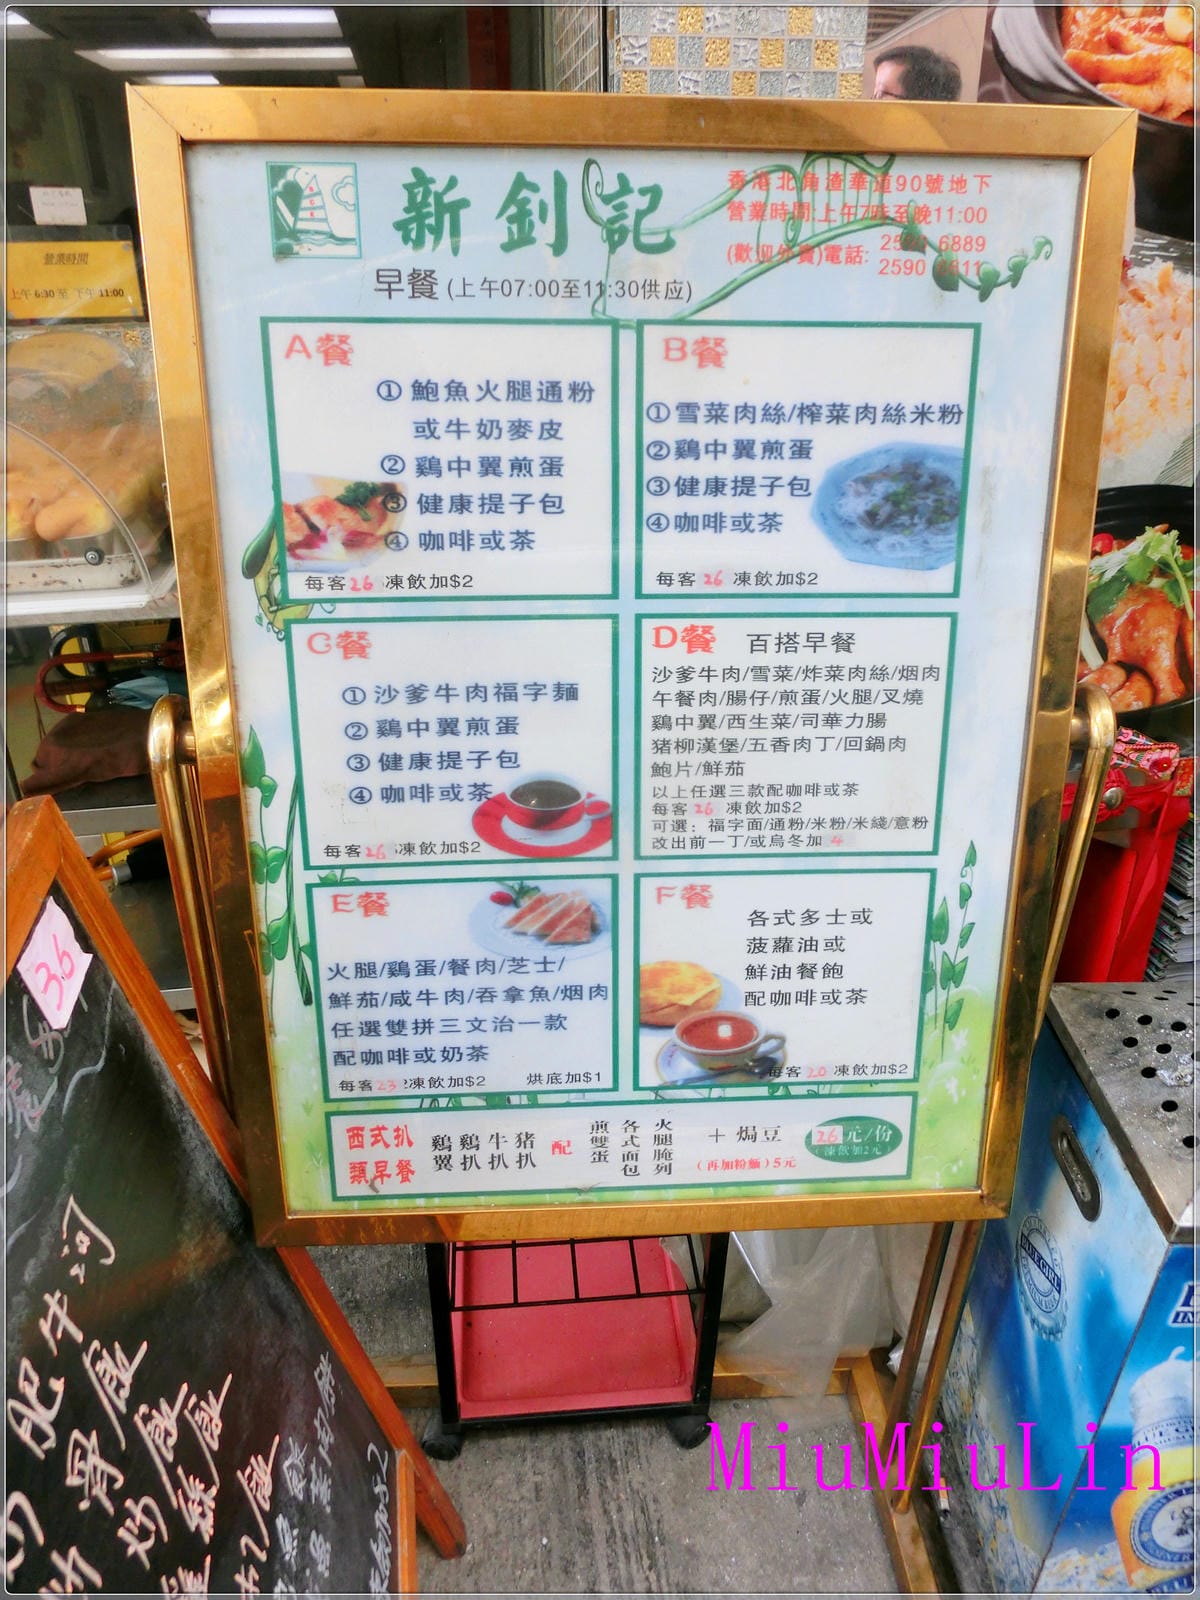 新釗記
香港北角渣華道90號地下
營業時間:上午7時至晚11:00
(歡迎外賣)電話:
6889
2590
早餐(上午07:00至11:30供应)
A餐
① 鮑魚火腿通粉
或牛奶麥皮
② 鷄中翼煎蛋
③ 健康提子包
④ 咖啡或茶
每客26 凍飲加$2
B餐
①雪菜肉絲/榨菜肉絲米粉
②鷄中翼煎蛋
③健康提子包
④咖啡或茶
每客26 凍飲加$2
C餐
① 沙爹牛肉福字麵
② 鷄中翼煎蛋
③ 健康提子包
④ 咖啡或茶
每客26 凍飲加$2
D餐 百搭早餐
沙爹牛肉/雪菜/炸菜肉絲/烟肉
午餐肉/腸仔/煎蛋/火腿/叉燒
鷄中翼/西生菜/司華力腸
豬柳漢堡/五香肉丁/回鍋肉
鮑片/鮮茄
以上任選三款配咖啡或茶
每客26 凍飲加$2
可選：福字面/通粉/米粉/米綫/意粉
改出前一丁/或烏冬加 4
E餐
火腿/鷄蛋/餐肉/芝士/
鮮茄/咸牛肉/吞拿魚/烟肉
任選雙拼三文治一款
配咖啡或奶茶
每客23 凍飲加$2 烘底加$1
F餐
各式多士或
菠蘿油或
鮮油餐飽
配咖啡或茶
每客20 凍飲加$2
西式扒
類早餐
鷄翼
鷄扒
牛扒
猪扒
配
煎雙蛋
各式面包
火腿腌列
＋ 焗豆
(再加粉麵)5元
26元/份
(凍飲加2元)
營業時間
上午 6:30 至 下午 11:00
36
BLUE GIRL
MiuMiuLin